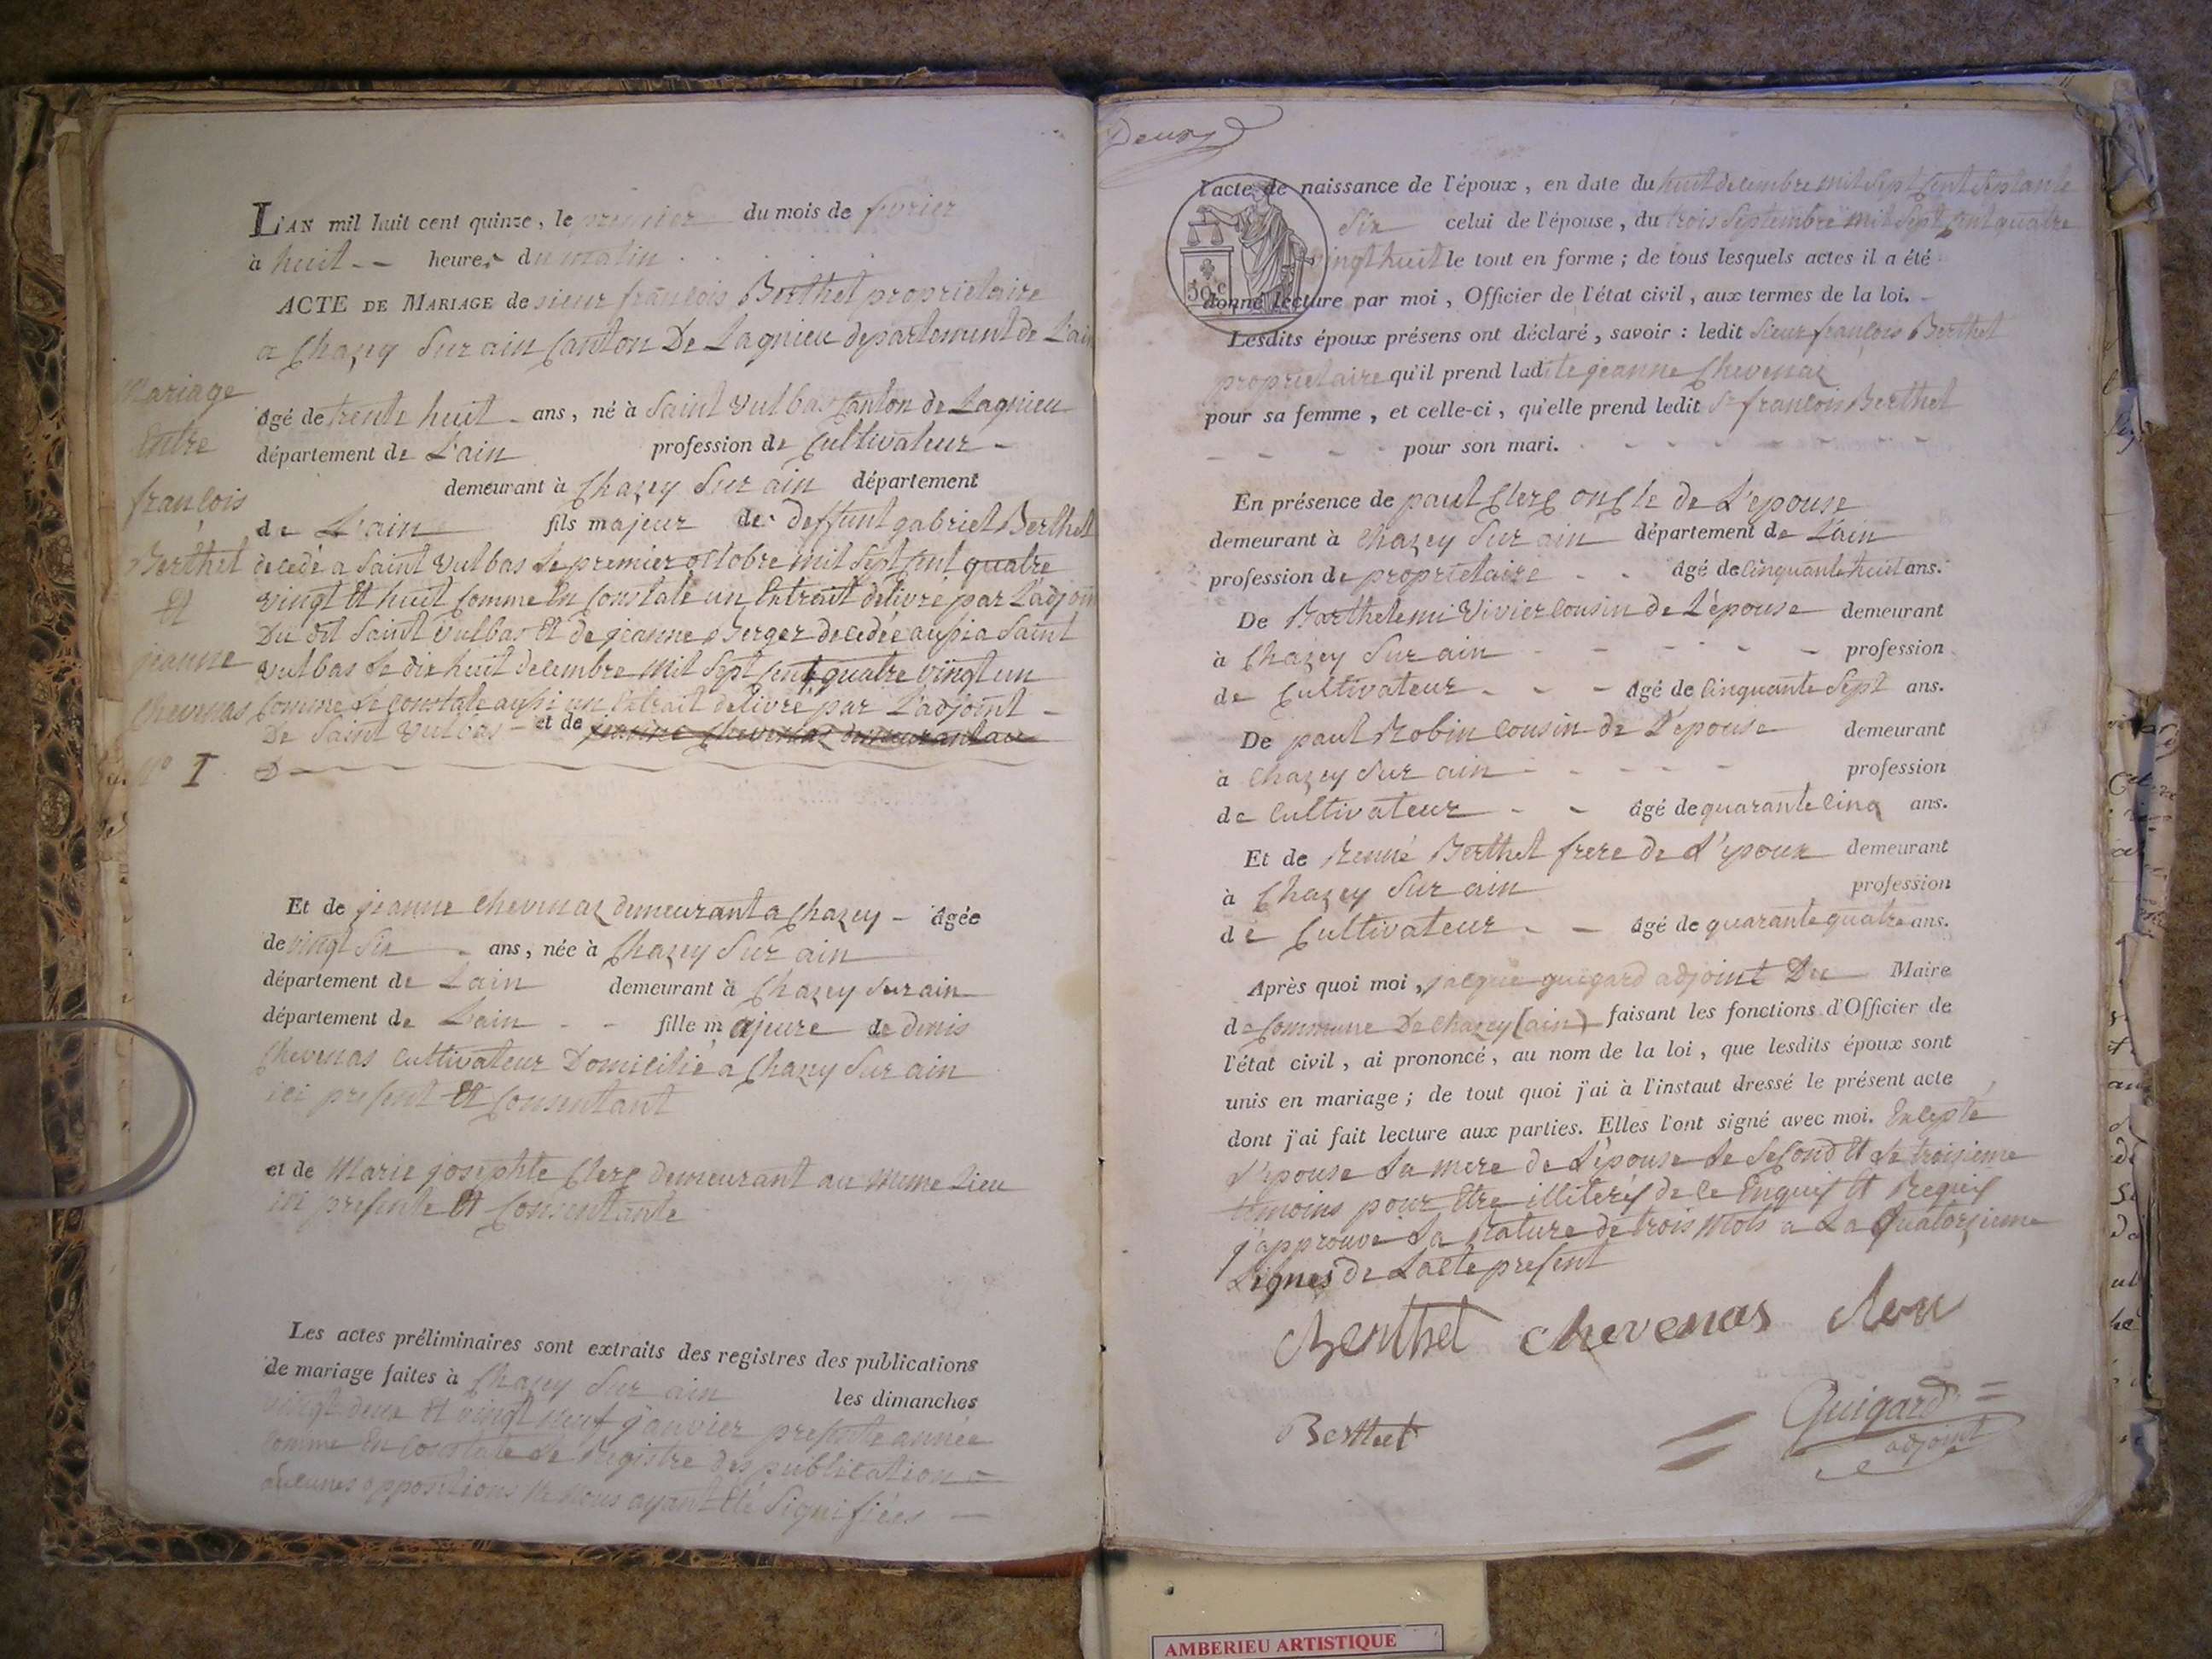 L'AN mil huit cent quinze, le premier du mois de fevrier
à huit -- heures du matin
ACTE DE MARIAGE de sieur françois Berthet proprietaire
a Chazey Sur ain Canton De Lagnieu departement de L'ain
Mariage
Entre
françois
Berthet
Et
jeanne
Chevenas
N° I
âgé de trente huit - ans, né à Saint Vulbas Canton de Lagnieu
département de L'ain profession de Cultivateur -
demeurant à Chazey Sur ain département
de L'ain fils majeur de deffunt gabriel Berthet
decedé a Saint Vulbas Le premier octobre mil Sept Cent quatre
vingt Et huit Comme En Constate un Extrait delivré par L'adjoint
Du dit Saint Vulbas Et de jeanne Berger decedée aussi a Saint
Vulbas Le dix huit decembre mil Sept Cent quatre vingt un
Comme Le Constate aussi un Extrait delivré par L'adjoint -
De Saint Vulbas - et de jeanne Chevenaz demeurant au
Et de jeanne Chevenaz demeurant a Chazey - âgée
de vingt Six - ans, née à Chazey Sur ain
département de Lain demeurant à Chazey Sur ain
département de Lain - - fille majeure de denis
Chevenas Cultivateur Domicilié a Chazey Sur ain
ici present Et Consentant
et de Marie josephte Clerc demeurant au meme Lieu
ici presente Et Consentante
Les actes préliminaires sont extraits des registres des publications
de mariage faites à Chazey Sur ain les dimanches
vingt deux Et vingt neuf janvier presente année
Comme En Constate Le Registre des publication =
aucunes oppositions ne nous ayant Eté Signifiées -
Deux
l'acte de naissance de l'époux, en date du huit decembre mil Sept Cent Septante
Six celui de l'épouse, du trois Septembre mil Sept Cent quatre
vingt huit le tout en forme; de tous lesquels actes il a été
donné lecture par moi, Officier de l'état civil, aux termes de la loi. -
50 c
Lesdits époux présens ont déclaré, savoir: ledit Sieur françois Berthet
proprietaire qu'il prend ladite jeanne Chevenaz
pour sa femme, et celle-ci, qu'elle prend ledit Sr françois Berthet
pour son mari.
En présence de paul Clerc oncle de L'epouse
demeurant à Chazey Sur ain département de L'ain
profession de proprietaire - - âgé de Cinquante huit ans.
De Barthelemi Vivier Cousin de L'épouse demeurant
à Chazey Sur ain - profession
de Cultivateur - - - âgé de Cinquante Sept ans.
De paul Robin Cousin de L'epouse demeurant
à Chazey Sur ain - profession
de Cultivateur - - âgé de quarante Cinq ans.
Et de Renné Berthet frere de L'epoux demeurant
à Chazey Sur ain profession
de Cultivateur - - âgé de quarante quatre ans.
Après quoi moi, jacque guigard adjoint Du Maire
de Commune De Chazey (ain) faisant les fonctions d'Officier de
l'état civil, ai prononcé, au nom de la loi, que lesdits époux sont
unis en mariage; de tout quoi j'ai à l'instaut dressé le présent acte
dont j'ai fait lecture aux parties. Elles l'ont signé avec moi. Excepté
L'epouse La mere de L'épouse Le Second Et Le troisieme
temoins pour Etre illiterés de Ce Enquis Et Requis
j'approuve La Rature de trois mots a La Quatorzieme
Lignes de L'acte present
Berthet chevenas
Berthet
Guigard =
adjoint
AMBERIEU ARTISTIQUE